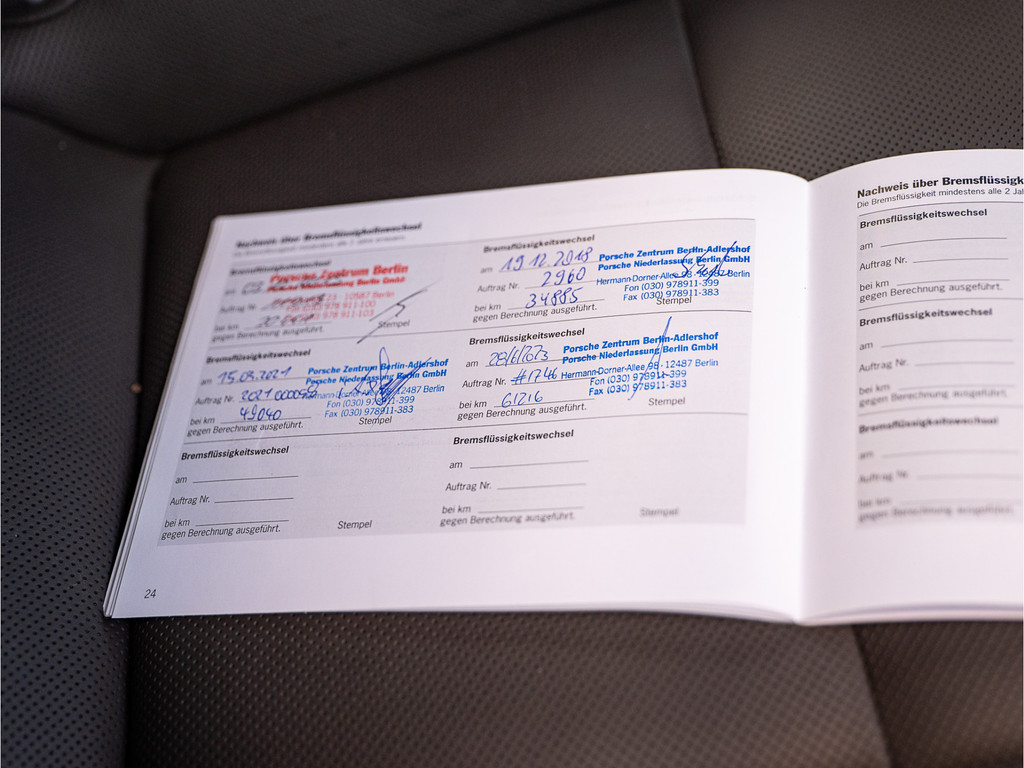 Nachweis über Bremsflüssigkeitswechsel
Bremsflüssigkeitswechsel
am
Porsche Zentrum Berlin
Porsche Niederlassung Berlin GmbH
10587 Berlin
Auftrag Nr.
978 911-100
978 911-103
bei km
gegen Berechnung ausgeführt.
Stempel
Bremsflüssigkeitswechsel
am 19.12.2018
Porsche Zentrum Berlin-Adlershof
Porsche Niederlassung Berlin GmbH
Auftrag Nr. 2960
Hermann-Dorner-Allee 98 - 12487 Berlin
Fon (030) 978911-399
Fax (030) 978911-383
bei km 34885
gegen Berechnung ausgeführt.
Stempel
Bremsflüssigkeitswechsel
am 15.03.2021
Porsche Zentrum Berlin-Adlershof
Porsche Niederlassung Berlin GmbH
Auftrag Nr.
Hermann-Dorner-Allee 98 - 12487 Berlin
Fon (030) 978911-399
Fax (030) 978911-383
bei km 49040
gegen Berechnung ausgeführt.
Stempel
Bremsflüssigkeitswechsel
am 28/6/2023
Porsche Zentrum Berlin-Adlershof
Porsche Niederlassung Berlin GmbH
Auftrag Nr. #1746
Hermann-Dorner-Allee 98 - 12487 Berlin
Fon (030) 978911-399
Fax (030) 978911-383
bei km 61216
gegen Berechnung ausgeführt.
Stempel
Bremsflüssigkeitswechsel
am
Auftrag Nr.
bei km
gegen Berechnung ausgeführt.
Stempel
Bremsflüssigkeitswechsel
am
Auftrag Nr.
bei km
gegen Berechnung ausgeführt.
Stempel
24
Nachweis über Bremsflüssigk
Die Bremsflüssigkeit mindestens alle 2 Jah
Bremsflüssigkeitswechsel
am
Auftrag Nr.
bei km
gegen Berechnung ausgeführt.
Bremsflüssigkeitswechsel
am
Auftrag Nr.
bei km
gegen Berechnung ausgeführt.
Bremsflüssigkeitswechsel
am
Auftrag Nr.
bei km
gegen Berechnung ausgeführt.